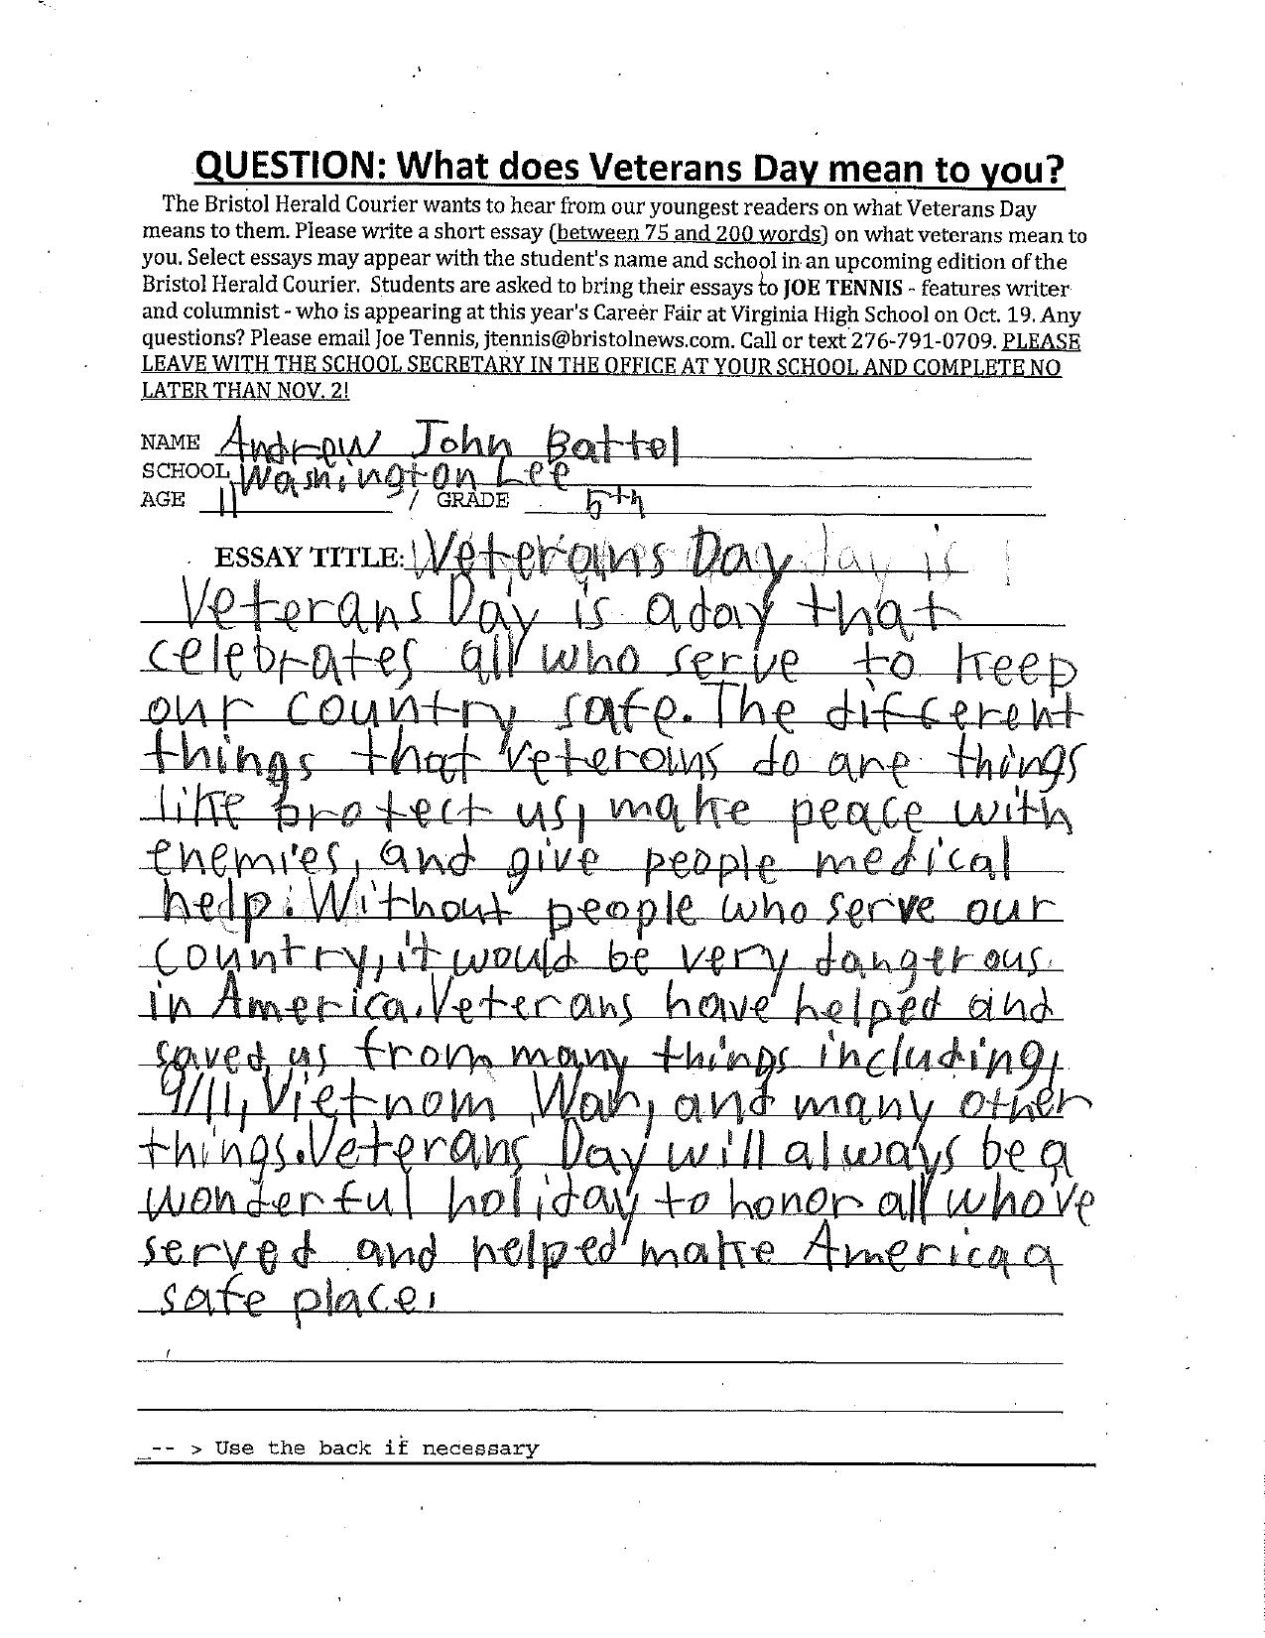 QUESTION: What does Veterans Day mean to you?
The Bristol Herald Courier wants to hear from our youngest readers on what Veterans Day
means to them. Please write a short essay (between 75 and 200 words) on what veterans mean to
you. Select essays may appear with the student's name and school in an upcoming edition of the
Bristol Herald Courier. Students are asked to bring their essays to JOE TENNIS - features writer
and columnist - who is appearing at this year's Career Fair at Virginia High School on Oct. 19. Any
questions? Please email Joe Tennis, jtennis@bristolnews.com. Call or text 276-791-0709. PLEASE
LEAVE WITH THE SCHOOL SECRETARY IN THE OFFICE AT YOUR SCHOOL AND COMPLETE NO
LATER THAN NOV. 2!
NAME Andrew John Battel
SCHOOL Washington Lee
AGE 11 / GRADE 5th
ESSAY TITLE: Veterans Day day is
Veterans Day is a day that
celebrates all who serve to keep
our country safe. The different
things that veterans do are things
like protect us, make peace with
enemies, and give people medical
help. Without people who serve our
country, it would be very dangerous
in America. Veterans have helped and
saved us from many things including,
9/11, Vietnam War, and many other
things. Veterans Day will always be a
wonderful holiday to honor all who've
served and helped make America a
safe place.
-- > Use the back if necessary